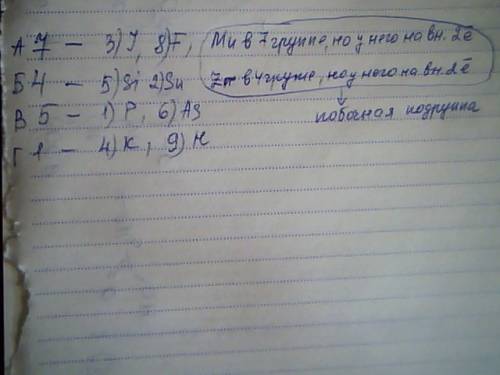 А 7 — 3) J, 8) F, Mn в 7 группе, но у него на вн. 2ē
Б 4 — 5) Si 2) Sn Zr в 4 группе, но у него на вн 2ē
В 5 — 1) P, 6) As побочная подгруппа
Г 1 — 4) K, 9) H